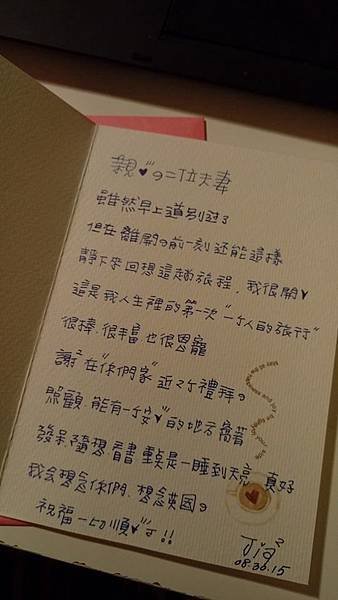 親♥"の二位夫妻
雖然早上道別過了
但在離開の前一刻還能這樣
靜下來回想這趟旅程，我很開♥
這是我人生裡的第一次"一个人的旅行"
很棒，很丰富，也很恩寵
謝² 在"你們家"近2个禮拜の
照顧，能有一个安"♥"的地方窩著
發呆，隨想，看書，重点是一睡到天亮，真好
我会想念你們，想念英國の
祝福一切順♥"り!!
08.30.15